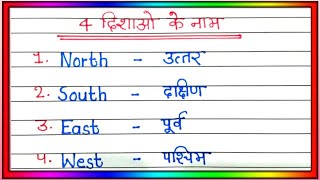 4 दिशाओ के नाम
1. North - उत्तर
2. South - दक्षिण
3. East - पूर्व
4. West - पश्चिम